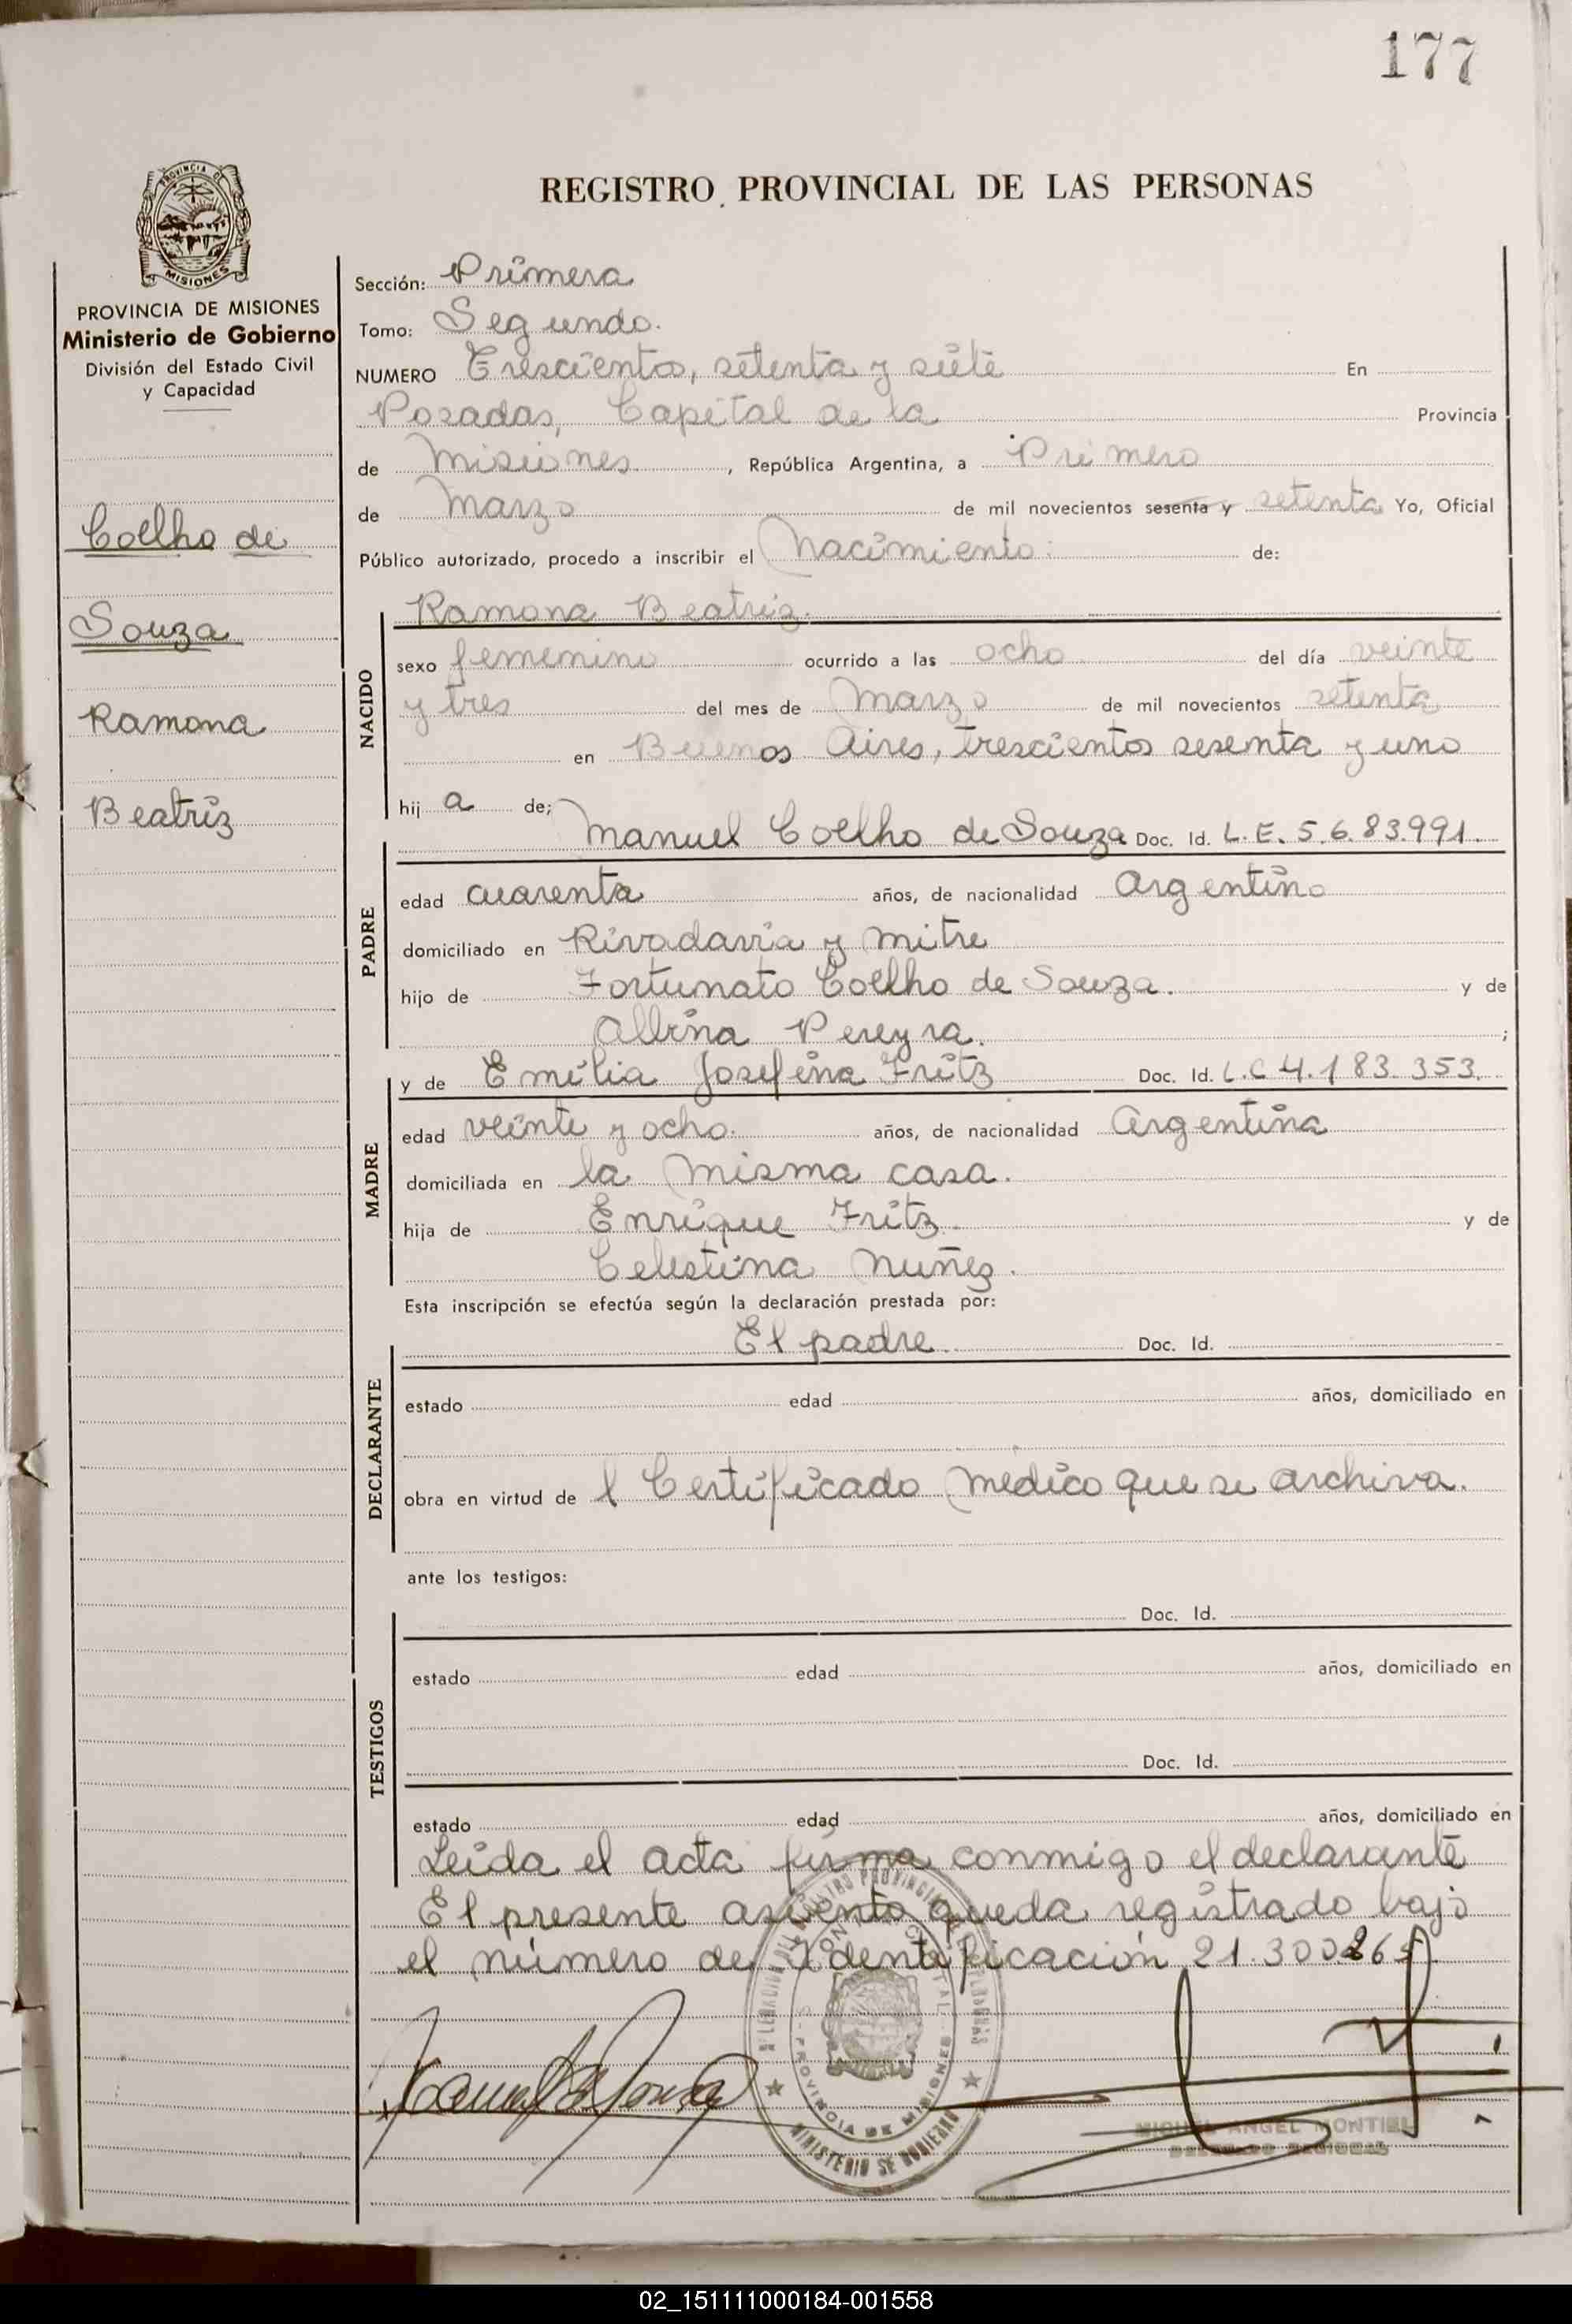 177
PROVINCIA DE
MISIONES
REGISTRO PROVINCIAL DE LAS PERSONAS
PROVINCIA DE MISIONES
Ministerio de Gobierno
División del Estado Civil
y Capacidad
Coelho de
Souza
Ramona
Beatriz
Sección: Primera
Tomo: Segundo.
NUMERO Trescientos, setenta y siete En
Posadas, Capital de la Provincia
de Misiones, República Argentina, a Primero
de Marzo de mil novecientos sesenta y setenta Yo, Oficial
Público autorizado, procedo a inscribir el Nacimiento: de:
NACIDO
Ramona Beatriz.
sexo femenino ocurrido a las ocho del día veinte
y tres del mes de Marzo de mil novecientos setenta
en Buenos Aires, trescientos sesenta y uno
hij a de;
PADRE
Manuel Coelho de Souza Doc. Id. L.E. 5.683.991.
edad cuarenta años, de nacionalidad Argentino
domiciliado en Rivadavia y Mitre
hijo de Fortunato Coelho de Souza. y de
Albina Pereyra. ;
MADRE
y de Emilia Josefina Fritz Doc. Id. L.C 4.183.353.
edad veinte y ocho. años, de nacionalidad Argentina
domiciliada en la misma casa.
hija de Enrique Fritz. y de
Celestina Nuñez.
Esta inscripción se efectúa según la declaración prestada por:
DECLARANTE
El padre. Doc. Id.
estado edad años, domiciliado en
obra en virtud de l Certificado Medico que se archiva.
ante los testigos:
TESTIGOS
Doc. Id.
estado edad años, domiciliado en
Doc. Id.
estado edad años, domiciliado en
Leida el acta firma conmigo el declarante
El presente asiento queda registrado bajo
el número de Identificación 21.300.265
PROVINCIA DE MISIONES
MINISTERIO DE GOBIERNO
MIGUEL ANGEL MONTIEL
02_151111000184-001558